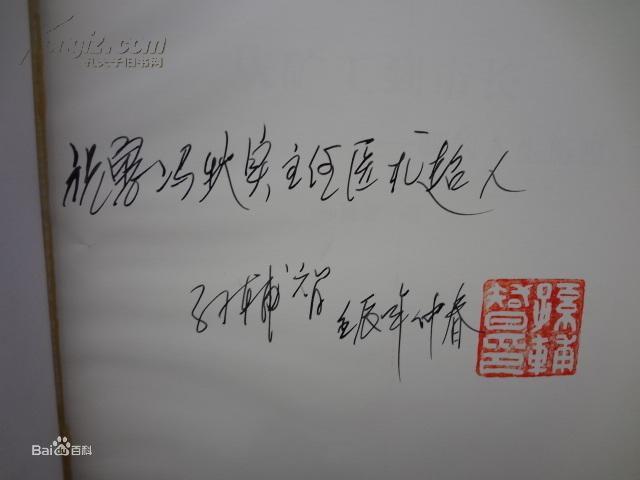 孔夫子旧书网
祝贺冯秋实主任医术超人
孙辅智 壬辰年仲春
孫輔智印
Bai百科